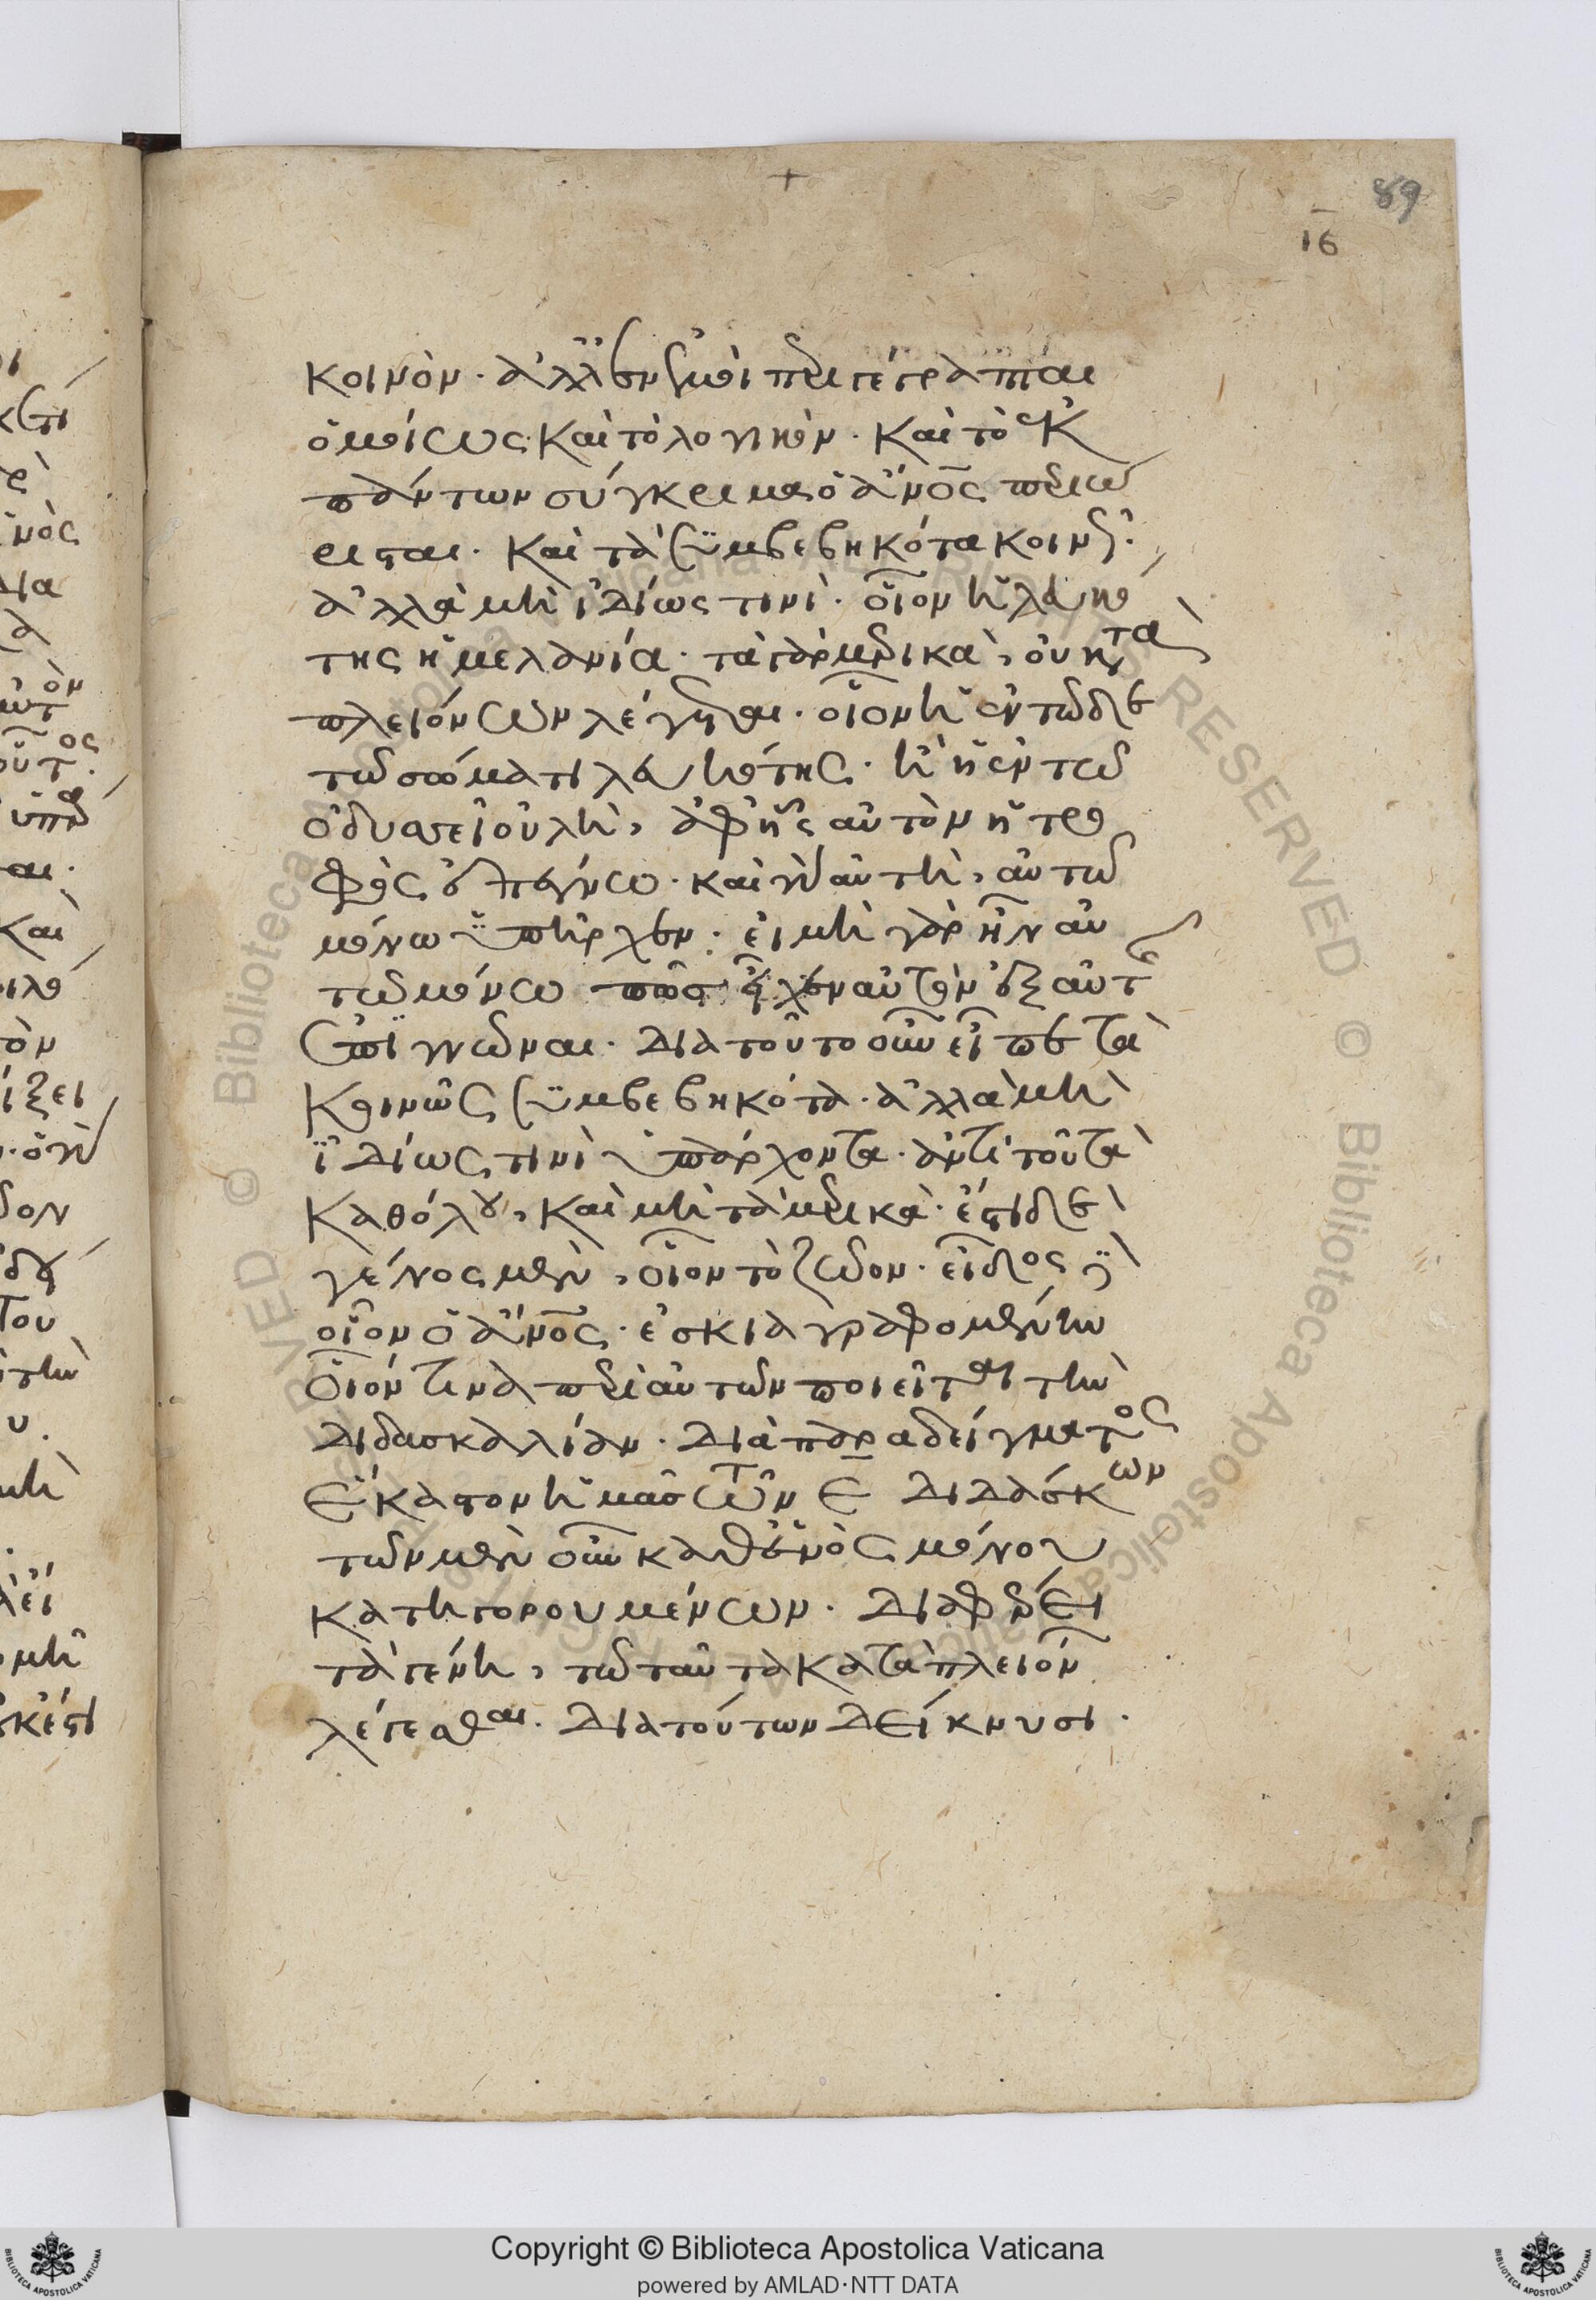 89
ιϛ
κοινόν. ἀλλ' ἐν ζώω περιγέγραπται
ὁμοίως καὶ τὸ λογικόν. καὶ τὸ ἐκ
πάντων σύγκριμα ὁ ἄνος περιώ
ρισται. καὶ τὰ συμβεβηκότα κοινῶς.
ἀλλὰ μὴ ἰδίως τινί. οἷον ἡ λευκό
της ἡ μελανία. τὰ γὰρ μερικὰ, οὐ κατὰ
πλειόνων λέγεται. οἷον ἡ ἐν τῶδε
τῶ σώματι λευκότης. ἢ ἡ ἐν τῶ
ὀδυσσεῖ οὐλὴ, ἀφ' ἧς αὐτὸν ἡ τρο
φὸς ἐπέγνω. καὶ γὰρ αὐτὴ, αὐτῶ
μόνω ὑπῆρχεν. εἰ μὴ γὰρ ἦν αὐ
τῶ μόνω πῶς εἶχεν αὐτὸν ἐξ αὐτῆς
ἐπιγνῶναι. διατοῦτο οὖν εἶπε τὰ
κοινῶς συμβεβηκότα. ἀλλὰ μὴ
ἰδίως τινὶ ὑπάρχοντα. ἀντὶ τοῦ τὰ
καθόλου, καὶ μὴ τὰ μερικά. ἔστι δὲ
γένος μὲν, οἷον τὸ ζῶον. εἶδος δὲ
οἷον ὁ ἄνος. ἐσκιαγραφομένην
οἷόν τινα περὶ αὐτῶν ποιεῖται τὴν
διδασκαλίαν. διὰ παραδείγματος
ἕκαστον ἡμᾶς τῶν ε διδάσκων
τῶν μὲν οὖν καθ' ἑνὸς μόνου
κατηγορουμένων. διαφέρει
τὰ γένη, τῶ ταῦτα κατὰ πλειόνων
λέγεσθαι. διατούτων δείκνυσι.
Copyright © Biblioteca Apostolica Vaticana
powered by AMLAD·NTT DATA